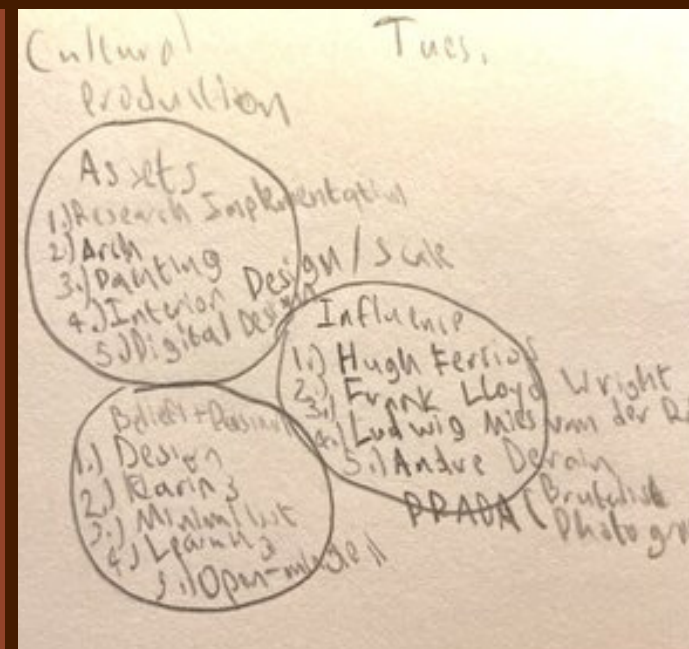 Cultural Tues.
production
Assets
1.) Research Implementation
2.) Arch
3.) Painting
4.) Interior Design / Scale
5.) Digital Design
Influence
1.) Hugh Ferriss
2.) Frank Lloyd Wright
3.)
4.) Ludwig Mies van der
5.) Andre Derain
PRADA ( Brutalist
Photogr
Beliefs +
1.) Design
2.)
3.) Minimalist
4.) Learning
5.) Open-minded